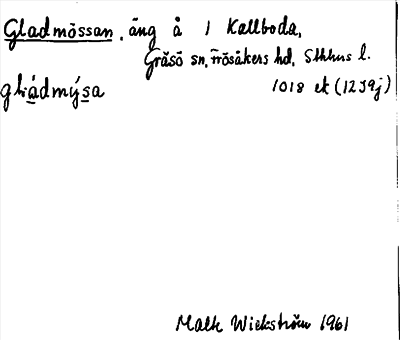 Gladmössan, äng å 1 Kallboda,
Gräsö sn, Frösåkers hd, Sthms l.
1018 ek (12 J 9 j)
Malk Wiekström 1961